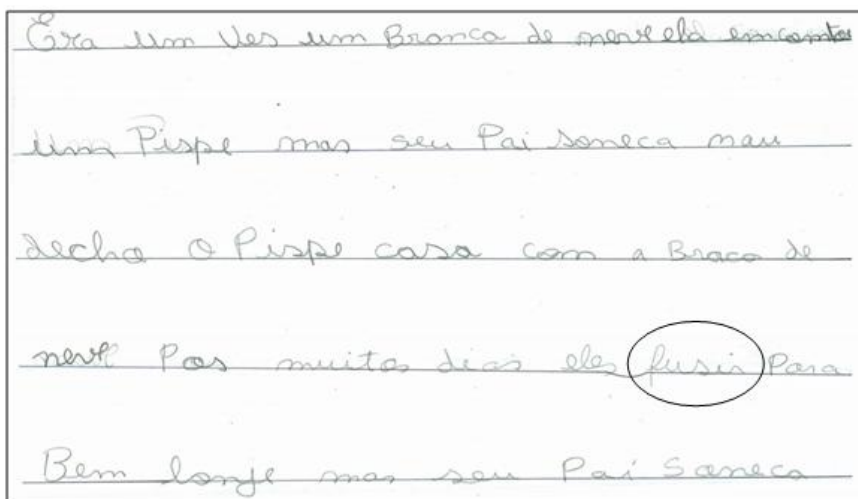 Era um Ves um Branca de neve ela emcomtra
um Pispe mas seu Pai soneca nau
decha o Pispe casa com a Braca de
neve Pas muitos dias eles fusir Para
Bem lonje mas seu Pai Soneca